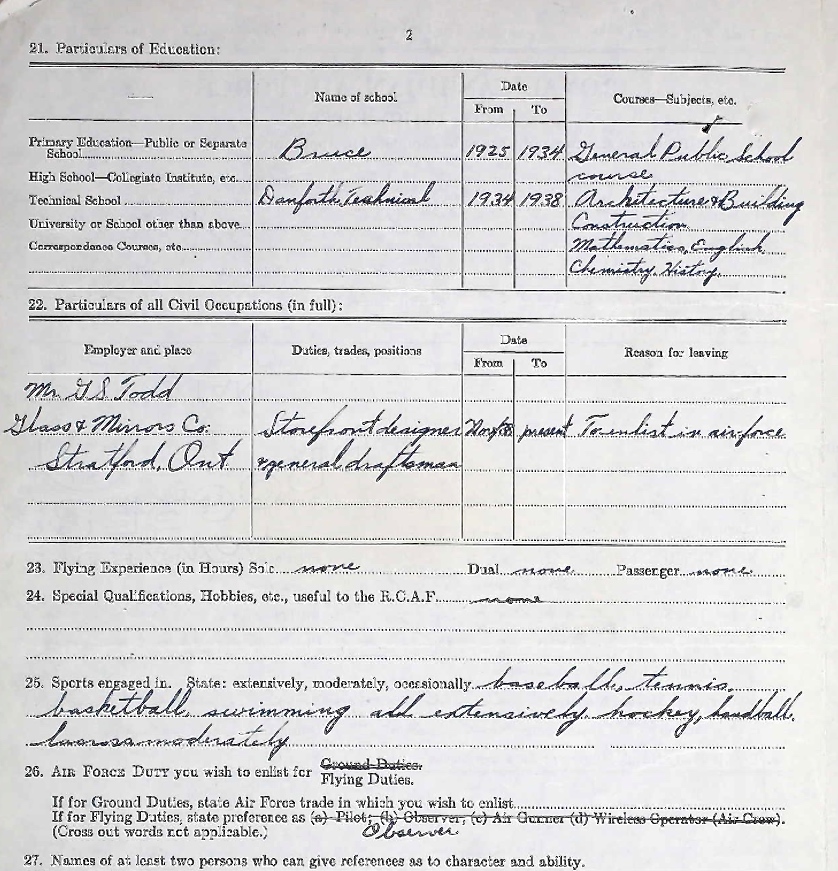 2
21. Particulars of Education:
Name of school
Date
From To
Courses—Subjects, etc.
Primary Education—Public or Separate
School Bruce 1925 1934 General Public School
High School—Collegiate Institute, etc. course
Technical School Danforth Technical 1934 1938 Architecture & Building
University or School other than above Construction
Correspondence Courses, etc. Mathematics, English,
Chemistry, History,
22. Particulars of all Civil Occupations (in full):
Employer and place Duties, trades, positions Date Reason for leaving
From To
Mr. G S Todd
Glass & Mirrors Co. Storefront designer present To enlist in air force
Stratford, Ont & general draftsman
23. Flying Experience (in Hours) Solo none Dual none Passenger none
24. Special Qualifications, Hobbies, etc., useful to the R.C.A.F. none
25. Sports engaged in. State: extensively, moderately, occasionally baseball, tennis,
basketball, swimming all extensively hockey, handball,
moderately
26. AIR FORCE DUTY you wish to enlist for Ground Duties.
Flying Duties.
If for Ground Duties, state Air Force trade in which you wish to enlist
If for Flying Duties, state preference as (a) Pilot; (b) Observer; (c) Air Gunner (d) Wireless Operator (Air Crew).
(Cross out words not applicable.) Observer
27. Names of at least two persons who can give references as to character and ability.